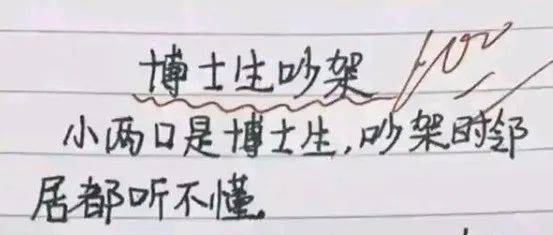 博士生吵架
100
小两口是博士生,吵架时邻
居都听不懂。